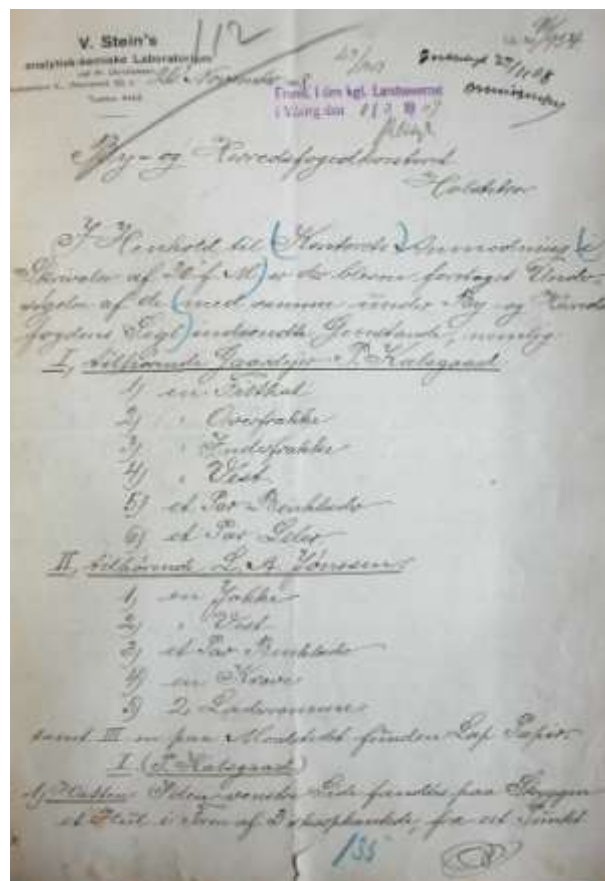 V. Stein's
analytisk-kemiske Laboratorium
26 November
Frem. i den kgl. Landsoverret
i Viborg den
By- og Herredsfogedkontoret
Holstebro
I Henhold til Kontorets Anmodning i
Skrivelse af 20. f. M. er der bleven foretaget Under-
søgelse af de med samme under By- og Herreds-
fogdens Segl indsendte Genstande, nemlig
I, tilhørende Gaardejer P. Kalsgaard
1) en Filthat
2) " Overfrakke
3) " Underfrakke
4) " Vest
5) et Par Benklæder
6) et Par Seler
II, tilhørende L. A. Jönsson:
1, en Jakke
2, " Vest
3, et Par Benklæder
4) en Krave
5) 2 Læderremme
samt III en paa Mordstedet funden Lap Papir
I (P. Kalsgaard)
1) Hatten I den venstre Side fandtes paa Skyggen
et Hul i Form af fra et Punkt
135